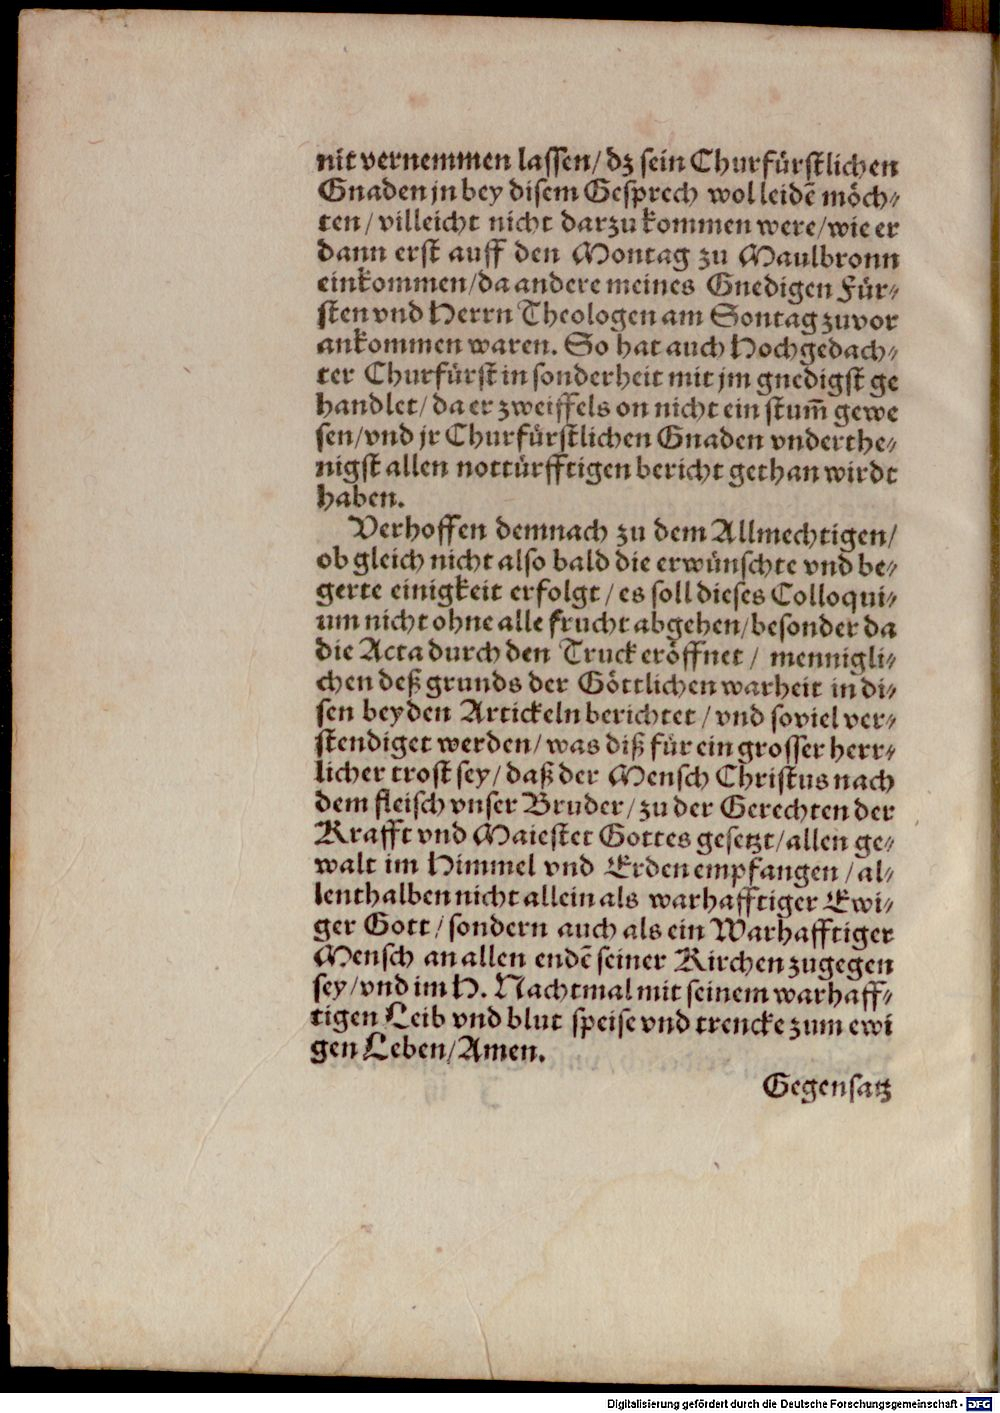 nit vernemmen lassen/ dz sein Churfürstlichen
Gnaden jn bey disem Gesprech wol leidē möch-
ten/ villeicht nicht darzu kommen were/ wie er
dann erst auff den Montag zu Maulbronn
einkommen/ da andere meines Gnedigen Für-
sten vnd Herrn Theologen am Sontag zuvor
ankommen waren. So hat auch Hochgedach-
ter Churfürst in sonderheit mit jm gnedigst ge
handlet/ da er zweiffels on nicht ein stum̄ gewe
sen/ vnd jr Churfürstlichen Gnaden vnderthe-
nigst allen nottürfftigen bericht gethan wirdt
haben.
Verhoffen demnach zu dem Allmechtigen/
ob gleich nicht also bald die erwünschte vnd be-
gerte einigkeit erfolgt/ es soll dieses Colloqui-
um nicht ohne alle frucht abgehen/ besonder da
die Acta durch den Truck eröffnet/ mennigli-
chen deß grunds der Göttlichen warheit in di-
sen beyden Artickeln berichtet/ vnd soviel ver-
stendiget werden/ was diß für ein grosser herr-
licher trost sey/ daß der Mensch Christus nach
dem fleisch vnser Bruder/ zu der Gerechten der
Krafft vnd Maiestet Gottes gesetzt/ allen ge-
walt im Himmel vnd Erden empfangen/ al-
lenthalben nicht allein als warhafftiger Ewi-
ger Gott/ sondern auch als ein Warhafftiger
Mensch an allen endē seiner Kirchen zugegen
sey/ vnd im H. Nachtmal mit seinem warhaff-
tigen Leib vnd blut speise vnd trencke zum ewi
gen Leben/ Amen.
Gegensatz
Digitalisierung gefördert durch die Deutsche Forschungsgemeinschaft - DFG